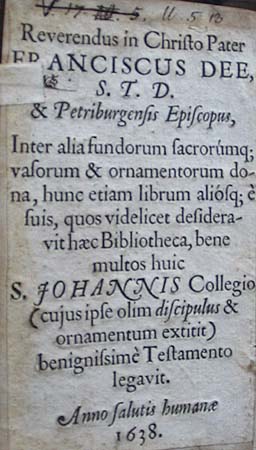 V 17. 5. U 5 13
Reverendus in Christo Pater
FRANCISCUS DEE,
S. T. D.
& Petriburgensis Episcopus,
Inter alia fundorum sacrorúmq;
vasorum & ornamentorum do-
na, hunc etiam librum aliósq; è
suis, quos videlicet desidera-
vit hæc Bibliotheca, bene
multos huic
S. JOHANNIS Collegio
(cujus ipse olim discipulus &
ornamentum extitit)
benignissimè Testamento
legavit.
Anno salutis humanæ
1638.